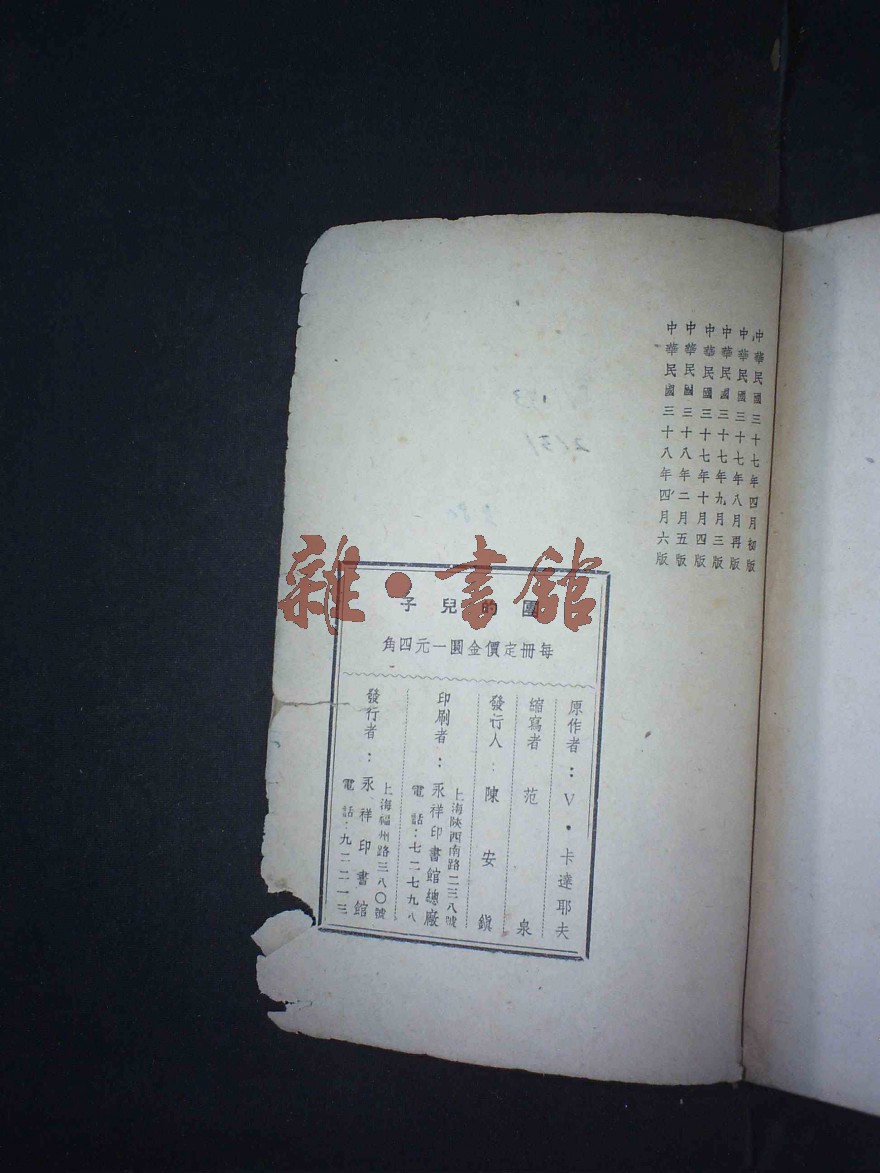 中華民國三十七年四月初版
中華民國三十七年八月再版
中華民國三十七年九月三版
中華民國三十七年十月四版
中華民國三十八年二月五版
中華民國三十八年四月六版
雜·書館
團的兒子
每冊定價金圓一元四角
原作者：V·卡達耶夫
縮寫者 范泉
發行人：陳安鎮
印刷者：永祥印書館總廠
上海陝西南路二三八號
電話：七二七九八
發行者：永祥印書館
上海福州路三八〇號
電話：九二二一三